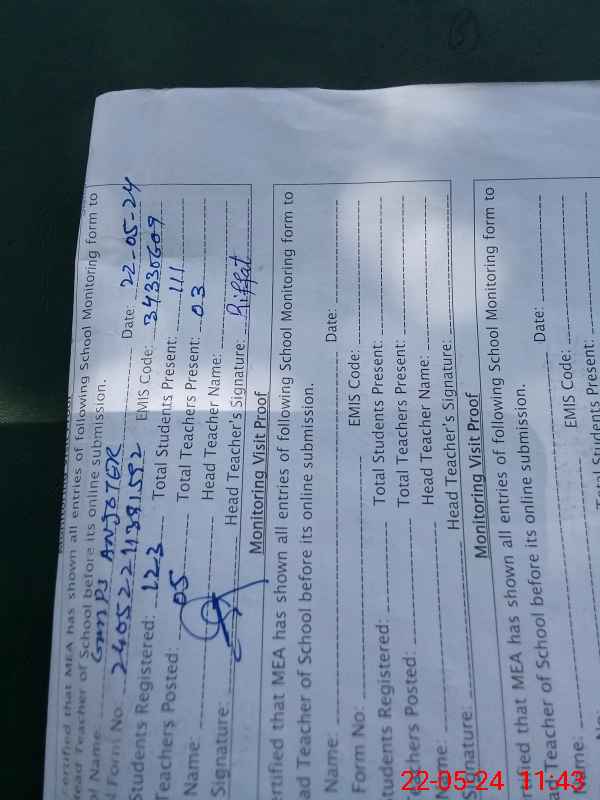 ertified that MEA has shown all entries of following School Monitoring form to
ead Teacher of School before its online submission.
ol Name: GMMPS ANJOTER Date: 22-05-24
l Form No: 24052211381592 EMIS Code: 34330609
Students Registered: 123 Total Students Present: 111
Teachers Posted: 05 Total Teachers Present: 03
Name: Head Teacher Name:
Signature: Head Teacher's Signature: Riffat
Monitoring Visit Proof
rtified that MEA has shown all entries of following School Monitoring form to
ad Teacher of School before its online submission.
Name: Date:
Form No: EMIS Code:
tudents Registered: Total Students Present:
eachers Posted: Total Teachers Present:
Name: Head Teacher Name:
Signature: Head Teacher's Signature:
Monitoring Visit Proof
rtified that MEA has shown all entries of following School Monitoring form to
ad Teacher of School before its online submission.
Name: Date:
No: EMIS Code:
Total Students Present:
22-05-24 11:43